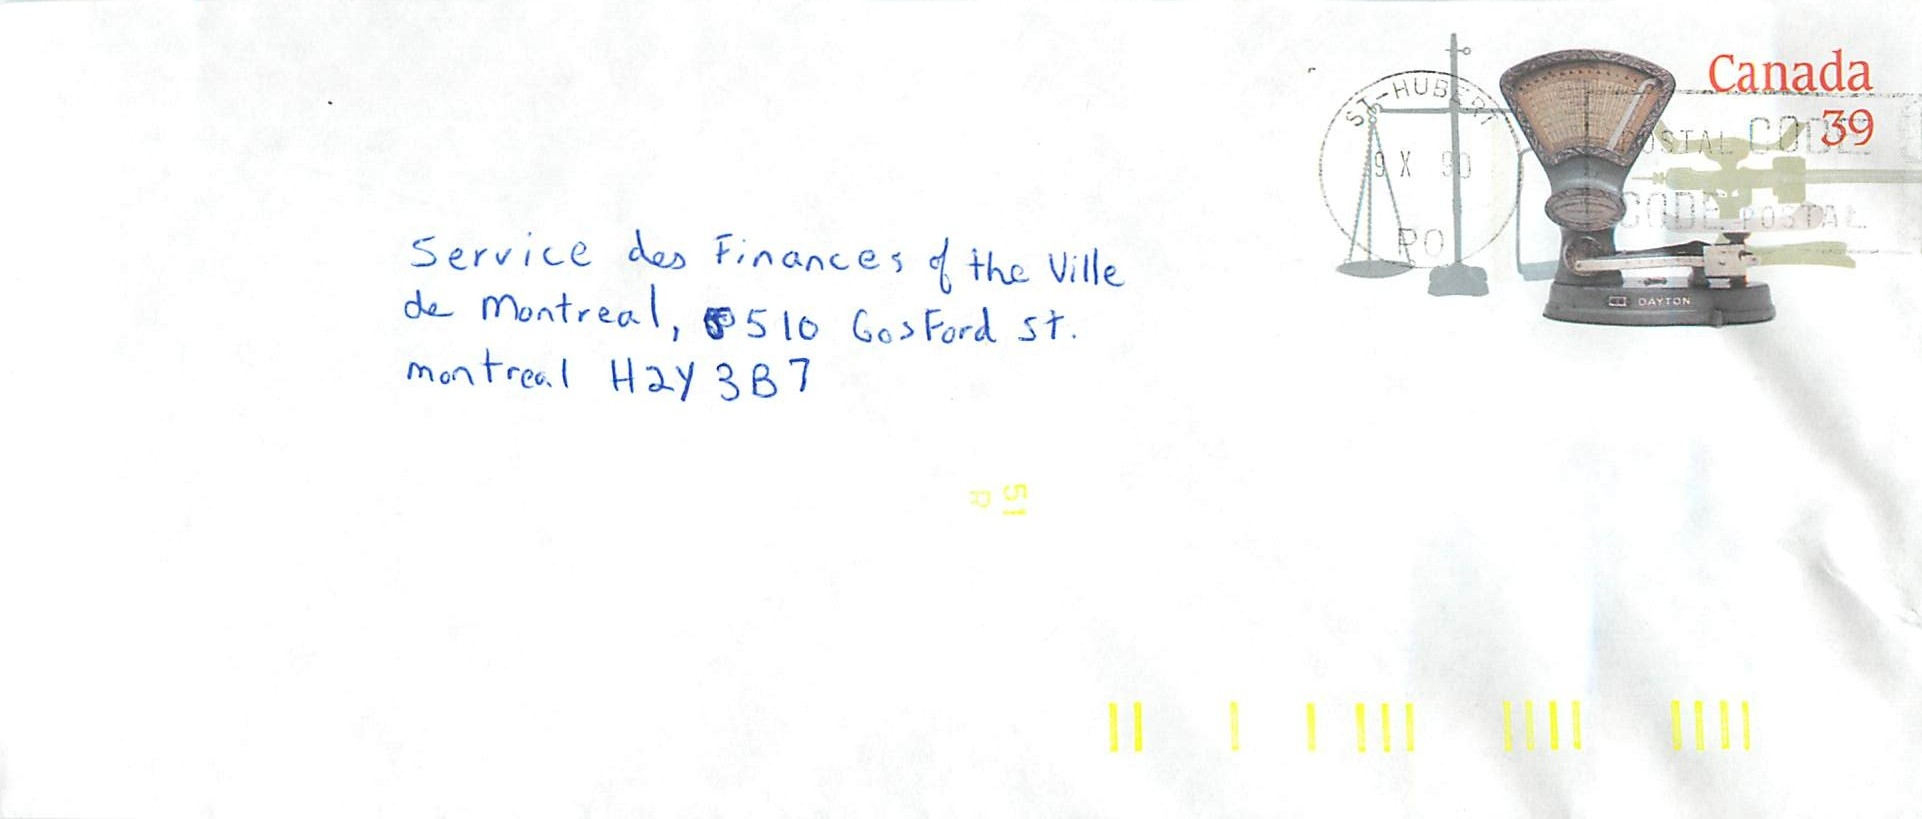 Canada
39
ST-HUBERT
9 X 90
PO
POSTAL CODE
CODE POSTAL
DAYTON
Service des Finances of the Ville
de Montreal, 510 Gosford St.
montreal H2Y 3B7
51
R